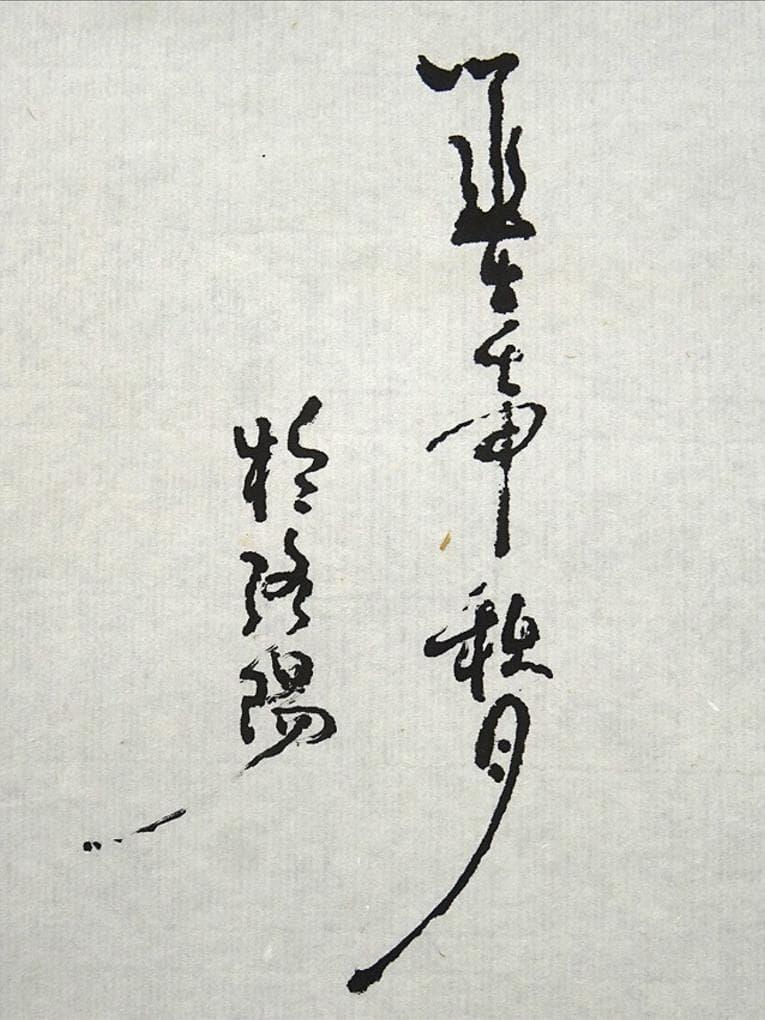 壬申秋月
於洛陽